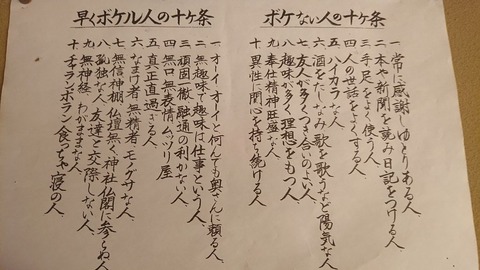 ボケない人の十ケ条
一 常に感謝しゆとりある人
二 本や新聞を読み日記をつける人
三 手足をよく使う人
四 人の世話をよくする人
五 ハイカラな人
六 酒をたしなみ歌を歌うなど陽気な人
七 友人が多くつき合いのよい人
八 趣味が多く理想をもつ人
九 奉仕精神旺盛な人
十 異性に関心を持ち続ける人
早くボケル人の十ケ条
一 オーイ オーイと何んでも奥さんに頼る人
二 無趣味で趣味は仕事という人
三 頑固で微融通の利かない人
四 無口無表情ムッツリ屋
五 真正直過ぎる人
六 なまけ者 無精者 モノグサな人
七 無信神棚仏壇無く神社仏閣に参らぬ人
八 孤独な人 友達と交際しない人
九 無神経わがままな人
十 チャランポラン食っちゃ寝の人